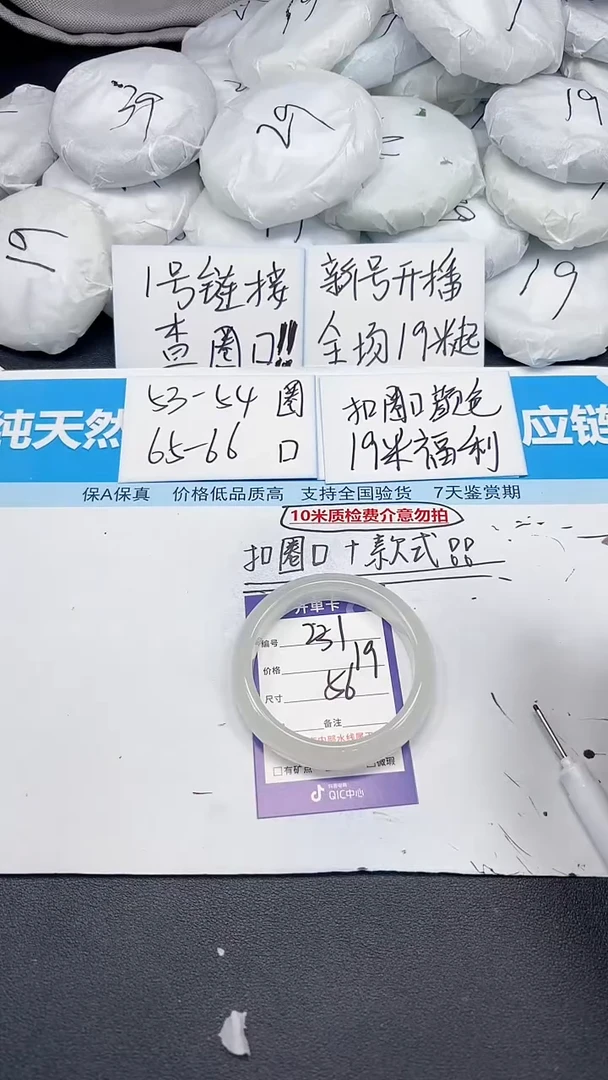 39
29
19
19
19
19
1号链接
查圈口!!
新号开播
全场19米起
53-54 圈
65-66 口
扣圈口颜色
19米福利
纯天然
应链
保A保真 价格低品质高 支持全国验货 7天鉴赏期
10米质检费介意勿拍
扣圈口+款式品
开单卡
编号 231
价格 19
尺寸 56
备注
有矿点
微瑕
抖音电商
QIC中心